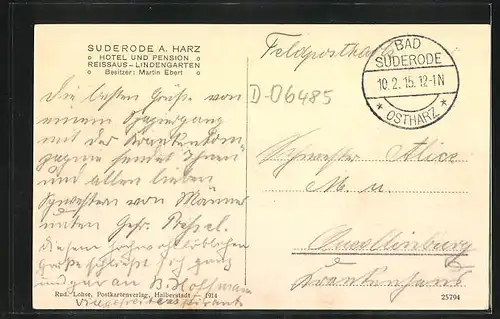 SUDERODE A. HARZ
o HOTEL UND PENSION o
o REISSAUS-LINDENGARTEN o
o Besitzer: Martin Ebert o
Feldpostkarte
BAD
SUDERODE
10.2.15.12-1N
* OSTHARZ *
D-06485
Die besten Grüße von
einem Spaziergang
mit der Krankenkom-
pagnie sendet Ihnen
und allen lieben
Schwestern von Männer
unten Gefr.
Diesem hochwohllöblichen
Gruße schließt sich ganz
und gar an B. Hoffmann
Schwester Alice
M. u.
Quedlinburg
Krankenhaus
Rud. Lohse, Postkartenverlag, Halberstadt — 1914
25704